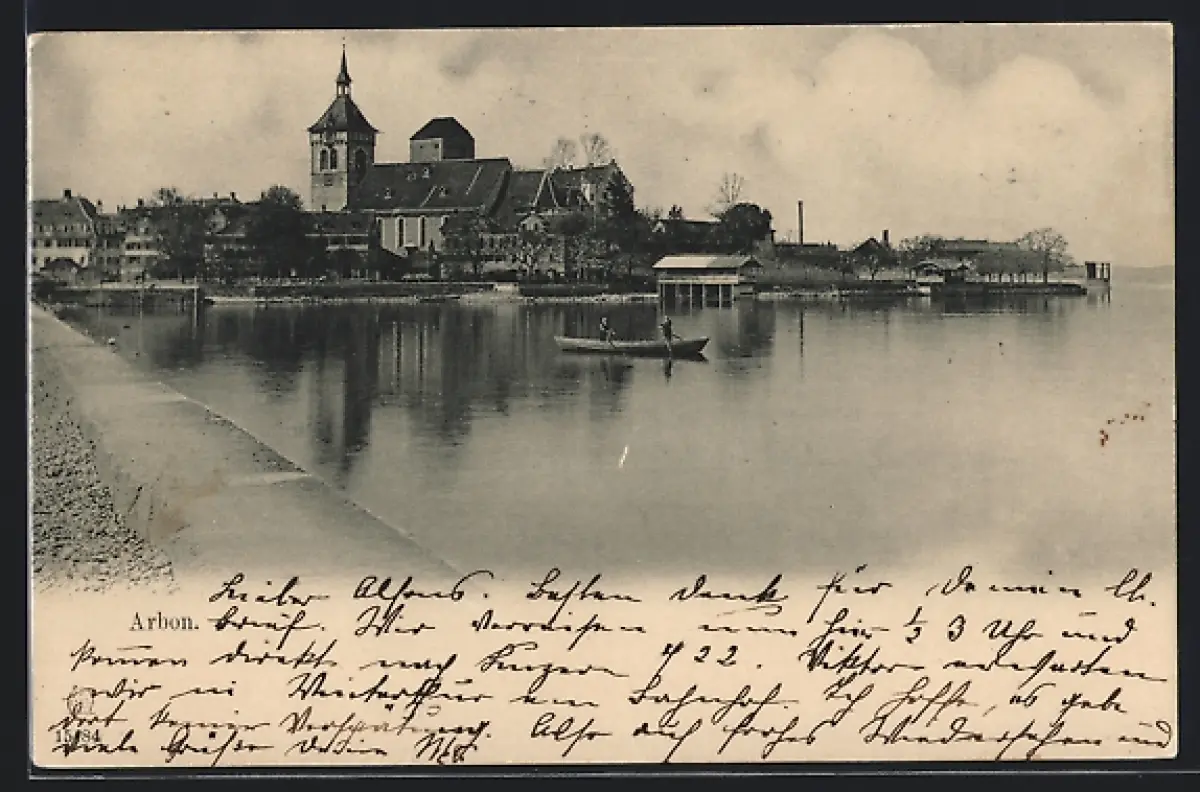 Lieber Alfons. Besten Dank für Deinen lb.
Arbon. Brief. Wir verreisen nun hier ½ 3 Uhr und
kommen direkt nach Luzern 7 22. Viktor erwarten
wir in Winterthur am Bahnhof. Ich hoffe, es gebe
dort keine Verspätung. Also auf frohes Wiedersehen und
15484 viele Grüße Deine